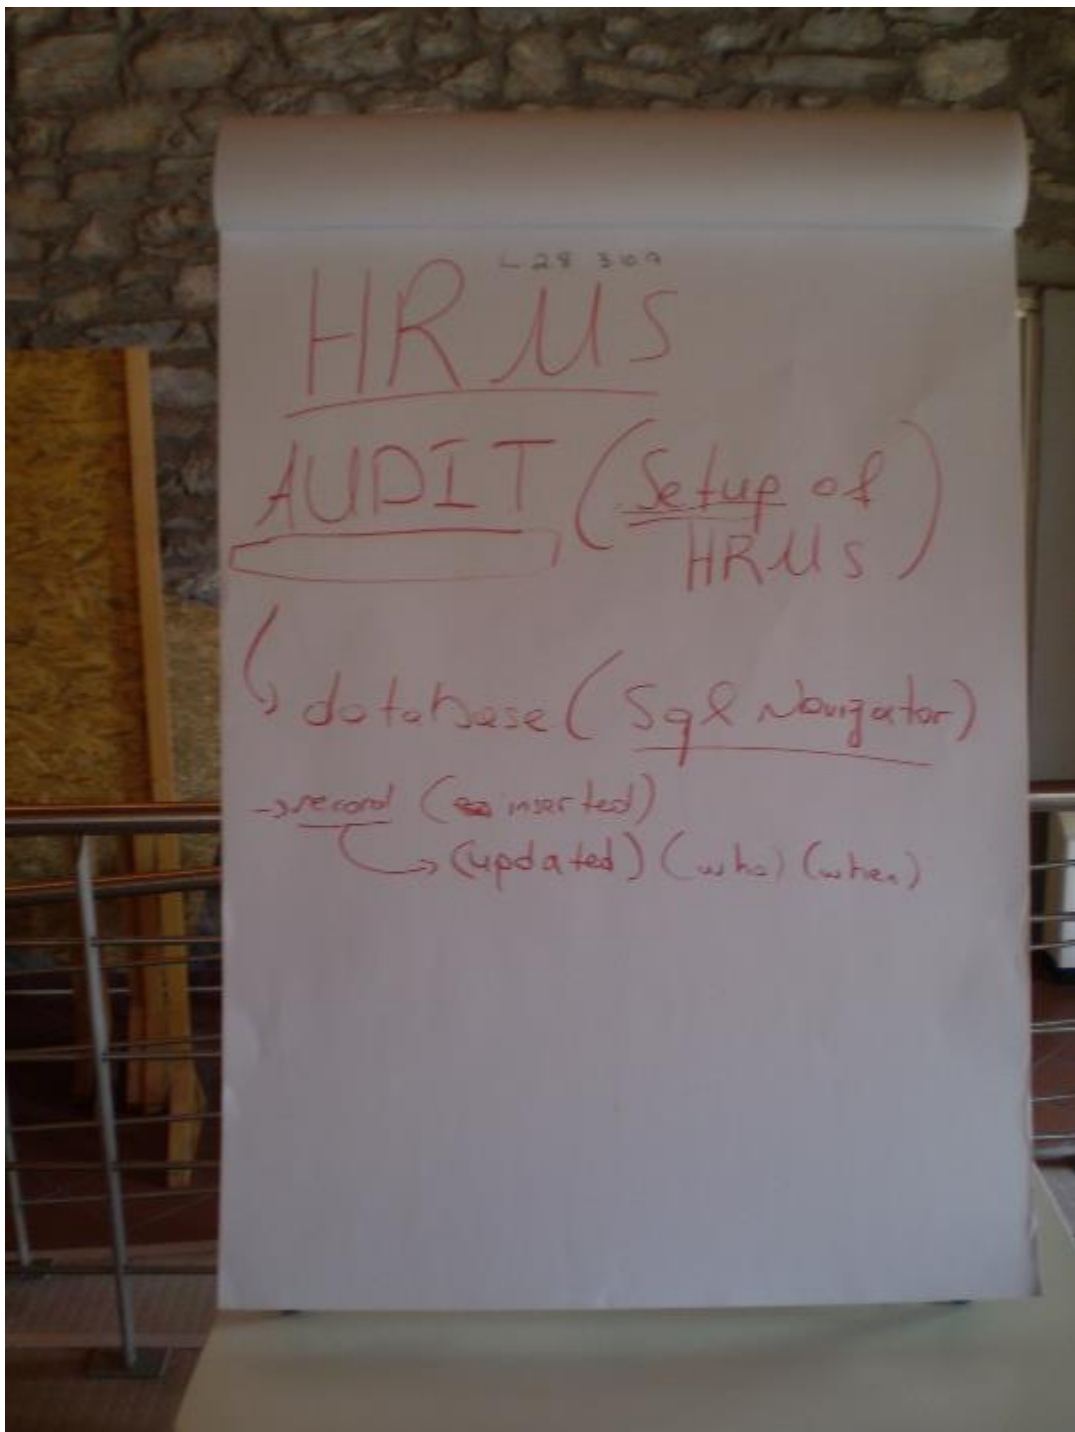 HRMS
AUDIT (Setup of
HRMS)
database (Sql Navigator)
→ record (inserted)
→ (updated) (who) (when)